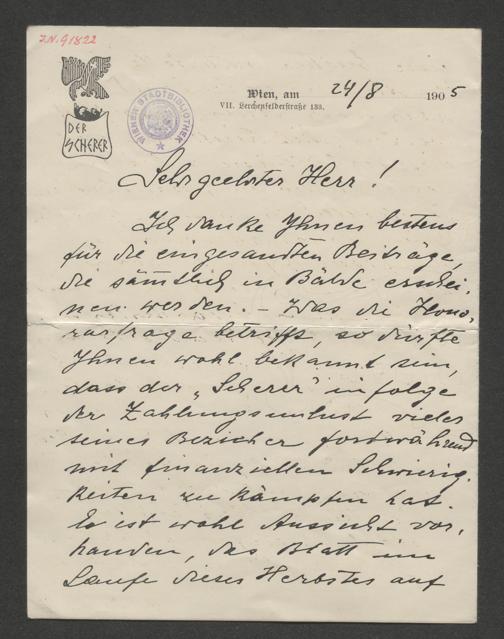 I.N. 91822
DER
SCHERER
WIENER STADTBIBLIOTHEK
Wien, am 24/8 1905
VII. Lerchenfelderstraße 138.
Sehr geehrter Herr!
Ich danke Ihnen bestens
für die eingesandten Beiträge,
die sämtlich in Bälde erschei-
nen werden. – Was die Hono-
rarfrage betrifft, so dürfte
Ihnen wohl bekannt sein,
dass der „Scherer" infolge
der Zahlungsunlust vieler
seiner Bezieher fortwährend
mit finanziellen Schwierig-
keiten zu kämpfen hat.
Es ist wohl Aussicht vor-
handen, das Blatt im
Laufe dieses Herbstes auf